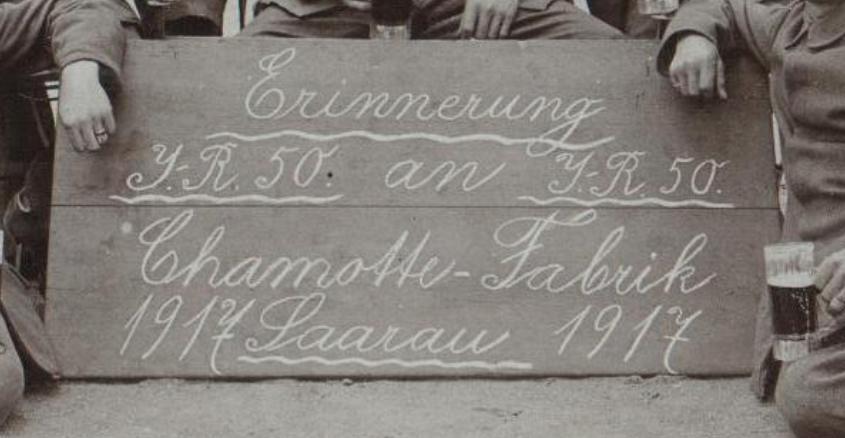 Erinnerung
J.-R. 50. an J.-R. 50.
Chamotte-Fabrik
1917 Saarau 1917